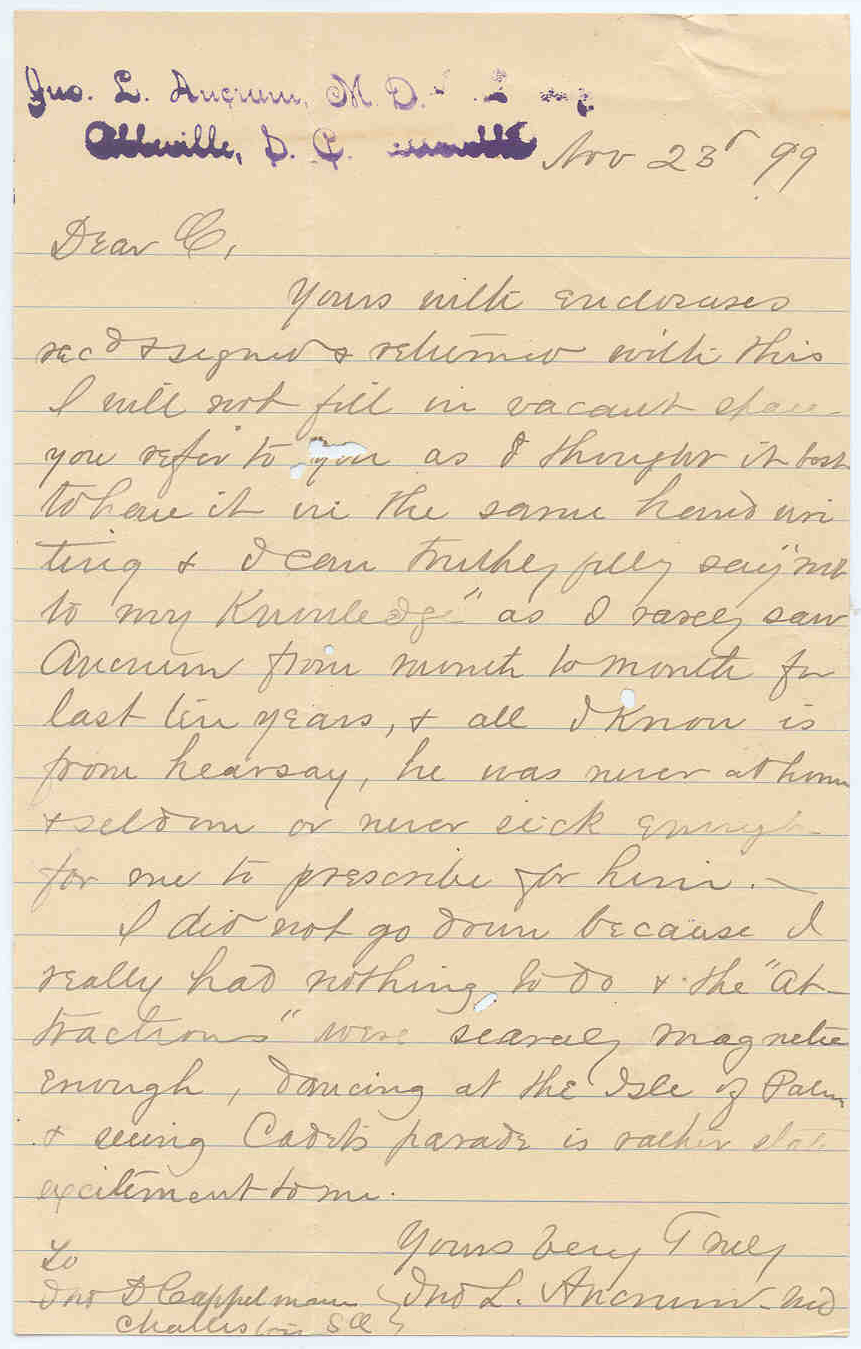 Jno. L. Ancrum, M. D.
Abbeville, S. C.
Nov 23d 99
Dear C,
Yours with enclosures
rec'd & signed & returned with this
I will not fill in vacant space
you refer to you as I thought it best
to have it in the same hand wri
ting & I can truthfully say "not
to my Knowledge" as I rarely saw
Ancrum from month to month for
last ten years, & all I Know is
from hearsay, he was never at home
& seldom or never sick enough
for me to prescribe for him. —
I did not go down because I
really had nothing to do & the "at-
tractions" were scarcely magnetic
enough, dancing at the Isle of Palm
& seeing Cadets parade is rather
excitement to me.
Yours very Truly
Jno L. Ancrum MD
To
Jno D Cappelmann
Charleston SC